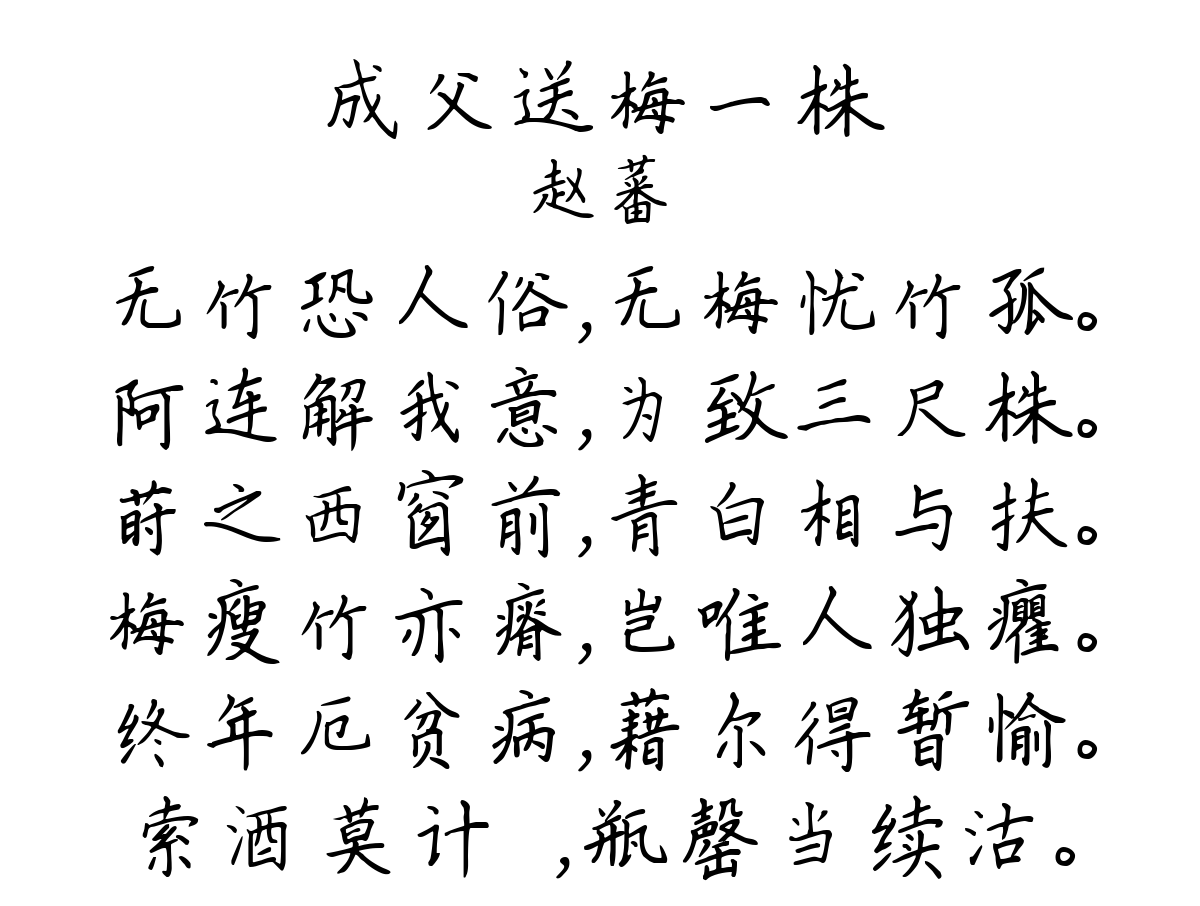 成父送梅一株
赵蕃
无竹恐人俗,无梅忧竹孤。
阿连解我意,为致三尺株。
莳之西窗前,青白相与扶。
梅瘦竹亦瘠,岂唯人独癯。
终年厄贫病,藉尔得暂愉。
索酒莫计 ,瓶罄当续沽。